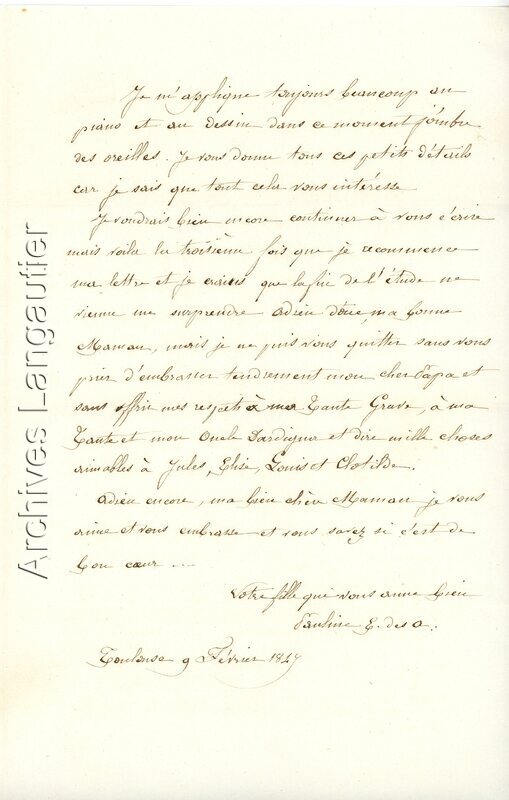 Je m'applique toujours beaucoup au
piano et au dessin dans ce moment j'ombre
des oreilles. Je vous donne tous ces petits détails
car je sais que tout cela vous intéresse
Je voudrais bien encore continuer à vous écrire
mais voila la troisième fois que je recommence
ma lettre et je crains que la fin de l'étude ne
vienne me surprendre adieu donc ma bonne
Maman, mais je ne puis vous quitter sans vous
prier d'embrasser tendrement mon cher Papa et
sans offrir mes respects à ma Tante Grave, à ma
Tante et mon Oncle Dardignac et dire mille choses
aimables à Jules, Elise, Louis et Clotilde.
Adieu encore, ma bien chère Maman je vous
aime et vous embrasse et vous savez si c'est de
bon cœur ...
Votre fille qui vous aime bien
Pauline E. des a.
Toulouse 9 Février 1847
Archives Langautier